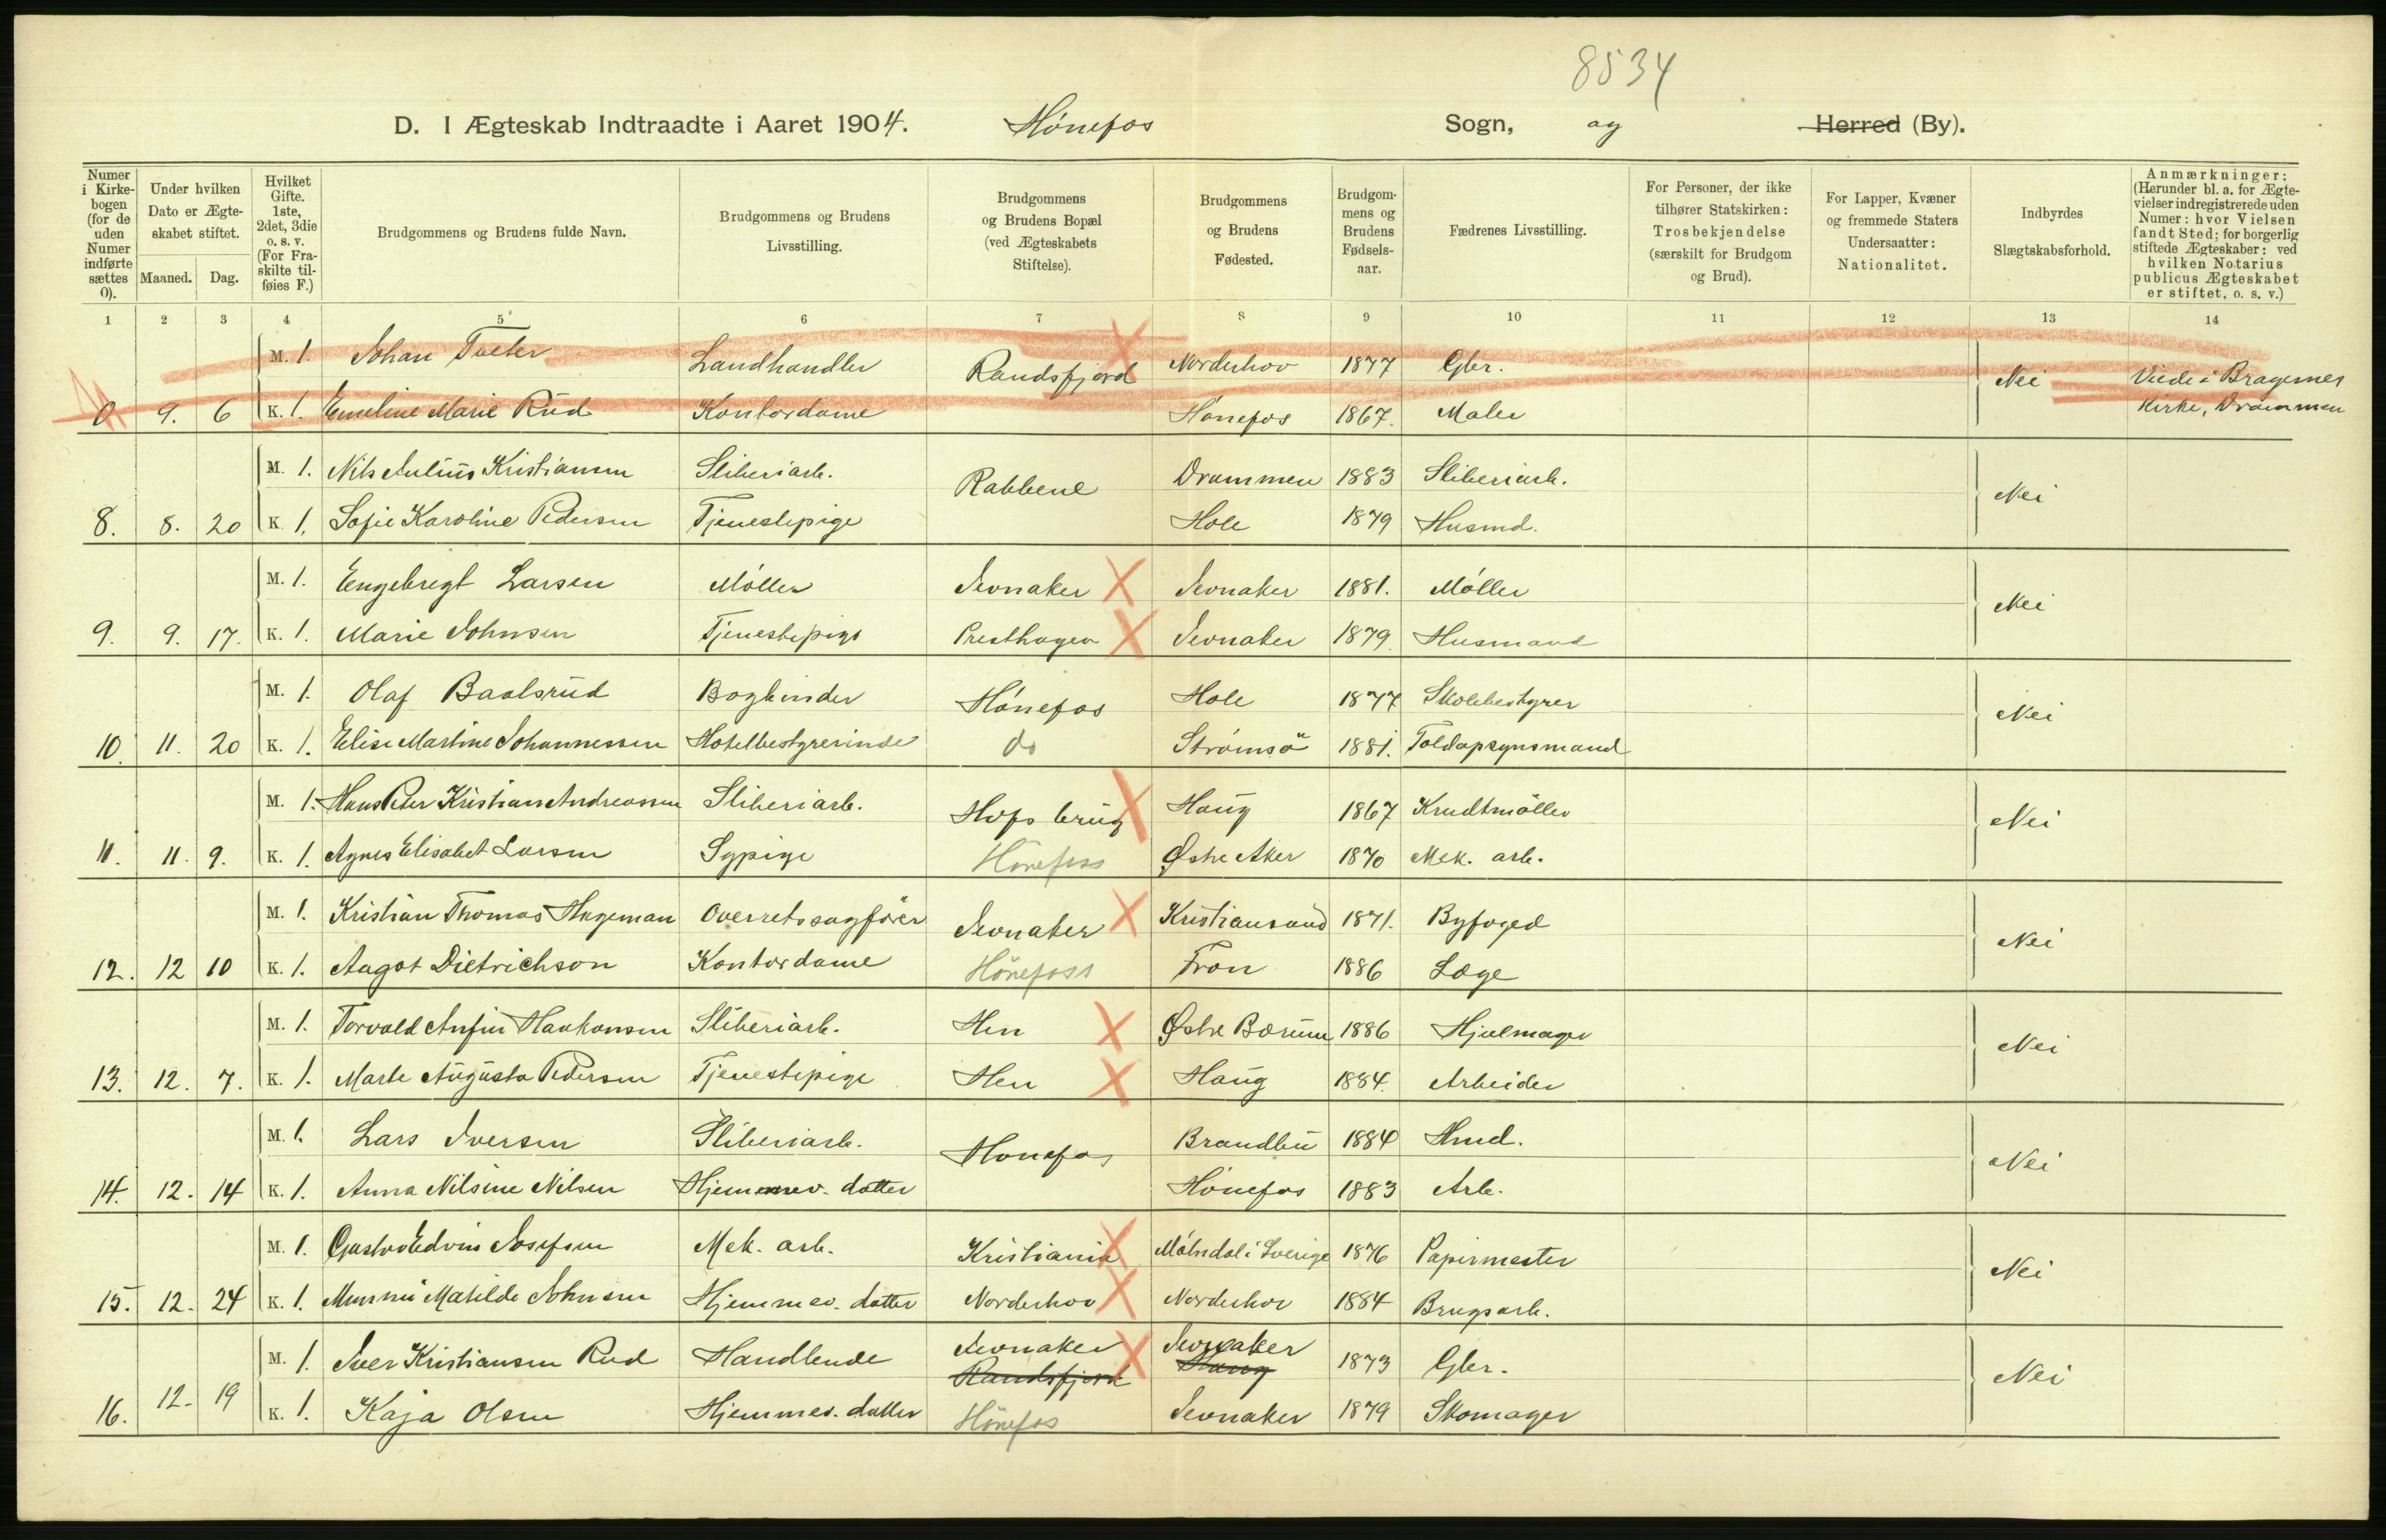 8534
D. I Ægteskab Indtraadte i Aaret 1904. Hönefos Sogn, og Herred (By).
Numer i Kirkebogen (for de uden Numer indførte sættes 0). Under hvilken Dato er Ægteskabet stiftet. Maaned. Dag. Hvilket Gifte. 1ste, 2det, 3die o. s. v. (For Fraskilte tilføies F.) Brudgommens og Brudens fulde Navn. Brudgommens og Brudens Livsstilling. Brudgommens og Brudens Bopæl (ved Ægteskabets Stiftelse). Brudgommens og Brudens Fødested. Brudgommens og Brudens Fødselsaar. Fædrenes Livsstilling. For Personer, der ikke tilhører Statskirken: Trosbekjendelse (særskilt for Brudgom og Brud). For Lapper, Kvæner og fremmede Staters Undersaatter: Nationalitet. Indbyrdes Slægtskabsforhold. Anmærkninger: (Herunder bl. a. for Ægtevielser indregistrerede uden Numer: hvor Vielsen fandt Sted; for borgerlig stiftede Ægteskaber: ved hvilken Notarius publicus Ægteskabet er stiftet, o. s. v.)
1 2 3 4 5 6 7 8 9 10 11 12 13 14
M. 1. Johan Tveter Landhandler Randsfjord Norderhov 1877 Gbr. Nei Viede i Bragernes
0 9. 6 K. 1. Emeline Marie Rud Kontordame Hönefos 1867. Maler Kirke, Drammen
M. 1. Nils Julius Kristiansen Sliberiarb. Rabbene Drammen 1883 Sliberiarb. Nei
8. 8. 20 K. 1. Sofie Karoline Pedersen Tjenestepige Hole 1879 Husmd.
M. 1. Engebregt Larsen Möller Jevnaker Jevnaker 1881. Möller Nei
9. 9. 17. K. 1. Marie Johnsen Tjenestepige Presthagen Jevnaker 1879. Husmand
M. 1. Olaf Baalsrud Bogbinder Hönefos Hole 1877 Skolebestyrer Nei
10. 11. 20 K. 1. Elise Martine Johannessen Hotelbestyrerinde do Strömsö 1881. Toldopsynsmand
M. 1. Hans Peter Kristian Andreassen Sliberiarb. Hofs brug Haug 1867 Krudtmöller Nei
11. 11. 9. K. 1. Agnes Elisabet Larsen Sypige Hönefoss Østre Aker 1870 Mek. arb.
M. 1. Kristian Thomas Hageman Overretssagförer Jevnaker Kristiansand 1871. Byfoged Nei
12. 12 10 K. 1. Aagot Dietrichson Kontordame Hönefoss Fron 1886 Læge
M. 1. Torvald Anfin Haakonsen Sliberiarb. Hen Østre Bærum 1886 Hjulmager Nei
13. 12. 7. K. 1. Marte Augusta Pedersen Tjenestepige Hen Haug 1884. Arbeider
M. 1. Lars Iversen Sliberiarb. Honefos Brandbu 1884 Hmd. Nei
14. 12. 14 K. 1. Anna Nilsine Nilsen Hjemmev. datter Hönefos 1883 Arb.
M. 1. Gustav Edvin Josefsen Mek. arb. Kristiania Mölndal i Sverige 1876 Papirmester Nei
15. 12. 24 K. 1. Minni Matilde Johnsen Hjemmev. datter Norderhov Norderhov 1884 Brugsarb.
M. 1. Iver Kristiansen Rud Handlende Jevnaker Randsfjord Jevnaker Haug 1873 Gbr. Nei
16. 12. 19 K. 1. Kaja Olsen Hjemmev. datter Hönefos Jevnaker 1879 Skomager